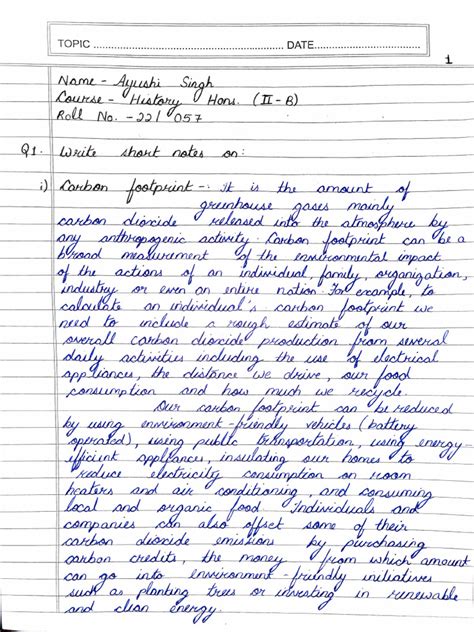 TOPIC ........................ DATE........................
1
Name - Ayushi Singh
Course - History Hons. (II-B)
Roll No. - 22/057
Q1. Write short notes on:
i) Carbon footprint -: It is the amount of
greenhouse gases mainly
carbon dioxide released into the atmosphere by
any anthropogenic activity. Carbon footprint can be a
broad measurement of the environmental impact
of the actions of an individual, family, organization,
industry or even an entire nation. For example, to
calculate an individual's carbon footprint we
need to include a rough estimate of our
overall carbon dioxide production from several
daily activities including the use of electrical
appliances, the distance we drive, our food
consumption and how much we recycle.
Our carbon footprint can be reduced
by using environment-friendly vehicles (battery
operated), using public transportation, using energy-
efficient appliances, insulating our homes to
reduce electricity consumption on room
heaters and air conditioning, and consuming
local and organic food. Individuals and
companies can also offset some of their
carbon dioxide emissions by purchasing
carbon credits, the money from which amount
can go into environment-friendly initiatives
such as planting trees or investing in renewable
and clean energy.